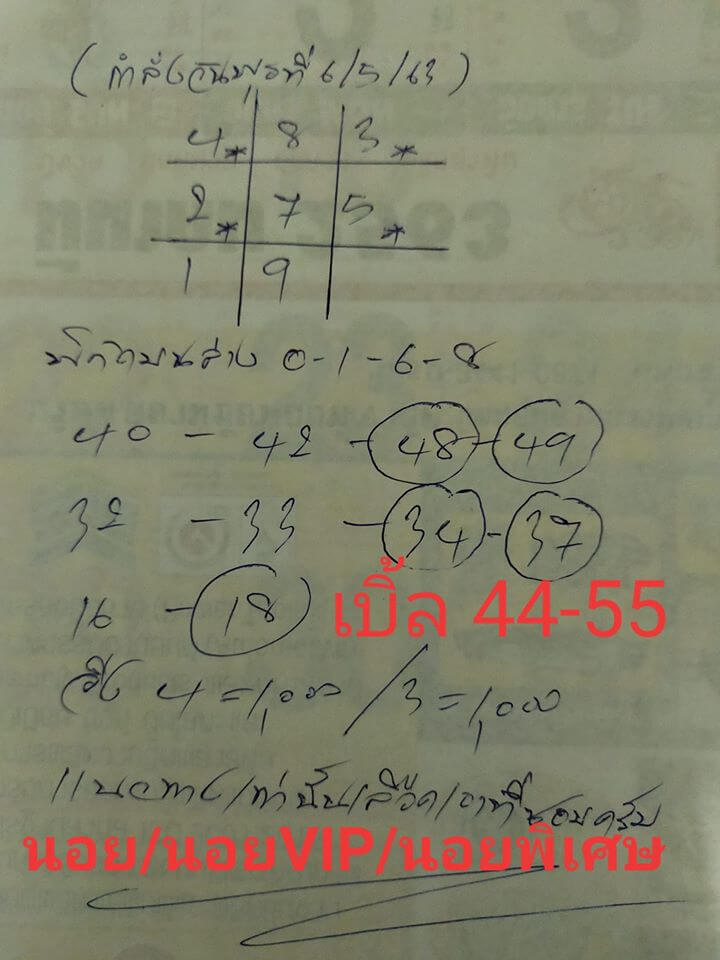 (กำลังวันพุธที่ 6/5/63)
4* 8 3*
2* 7 5*
1 9
บนล่าง 0-1-6-8
40 - 42 - 48 - 49
32 - 33 - 34 - 37
16 - 18 เบิ้ล 44-55
วิ่ง 4 = 1,000 / 3 = 1,000
แนวทางเท่านั้นเลือดเอาที่ชอบครับ
นอย/นอยVIP/นอยพิเศษ